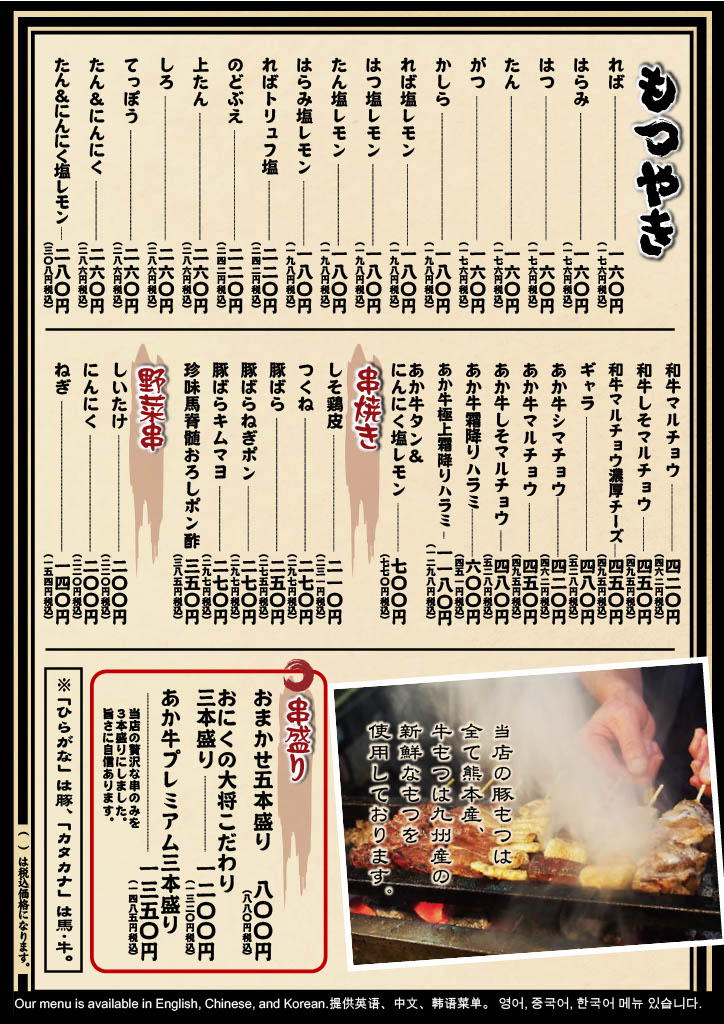 もつやき
れば 一六〇円
(一七六円税込)
はらみ 一六〇円
(一七六円税込)
はつ 一六〇円
(一七六円税込)
たん 一六〇円
(一七六円税込)
がつ 一六〇円
(一七六円税込)
かしら 一八〇円
(一九八円税込)
れば塩レモン 一八〇円
(一九八円税込)
はつ塩レモン 一八〇円
(一九八円税込)
たん塩レモン 一八〇円
(一九八円税込)
はらみ塩レモン 一八〇円
(一九八円税込)
ればトリュフ塩 二二〇円
(二四二円税込)
のどぶえ 二二〇円
(二四二円税込)
上たん 二六〇円
(二八六円税込)
しろ 二六〇円
(二八六円税込)
てっぽう 二六〇円
(二八六円税込)
たん&にんにく 二六〇円
(二八六円税込)
たん&にんにく塩レモン 二八〇円
(三〇八円税込)
和牛マルチョウ 四二〇円
(四六二円税込)
和牛しそマルチョウ 四五〇円
(四九五円税込)
和牛マルチョウ濃厚チーズ 四五〇円
(四九五円税込)
ギャラ 四八〇円
(五二八円税込)
あか牛シマチョウ 四二〇円
(四六二円税込)
あか牛マルチョウ 四五〇円
(四九五円税込)
あか牛しそマルチョウ 四八〇円
(五二八円税込)
あか牛霜降りハラミ 六〇〇円
(四五一円税込)
あか牛極上霜降りハラミ 一一八〇円
(一二九八円税込)
あか牛タン&
にんにく塩レモン 七〇〇円
(七七〇円税込)
串焼き
しそ鶏皮 二一〇円
(二三一円税込)
つくね 二七〇円
(二九七円税込)
豚ばら 二五〇円
(二七五円税込)
豚ばらねぎポン 二七〇円
(二九七円税込)
豚ばらキムマヨ 二七〇円
(二九七円税込)
珍味馬脊髄おろしポン酢 三五〇円
(三八五円税込)
野菜串
しいたけ 二〇〇円
(二二〇円税込)
にんにく 二〇〇円
(二二〇円税込)
ねぎ 一四〇円
(一五四円税込)
当店の豚もつは
全て熊本産、
牛もつは九州産の
新鮮なもつを
使用しております。
串盛り
おまかせ五本盛り 八〇〇円
(八八〇円税込)
おにくの大将こだわり
三本盛り 一二〇〇円
(一三二〇円税込)
あか牛プレミアム三本盛り
一三五〇円
(一四八五円税込)
当店の贅沢な串のみを
3本盛りにしました。
旨さに自信あります。
※「ひらがな」は豚、「カタカナ」は馬・牛。
( )は税込価格になります。
Our menu is available in English, Chinese, and Korean.提供英语、中文、韩语菜单。 영어, 중국어, 한국어 메뉴 있습니다.